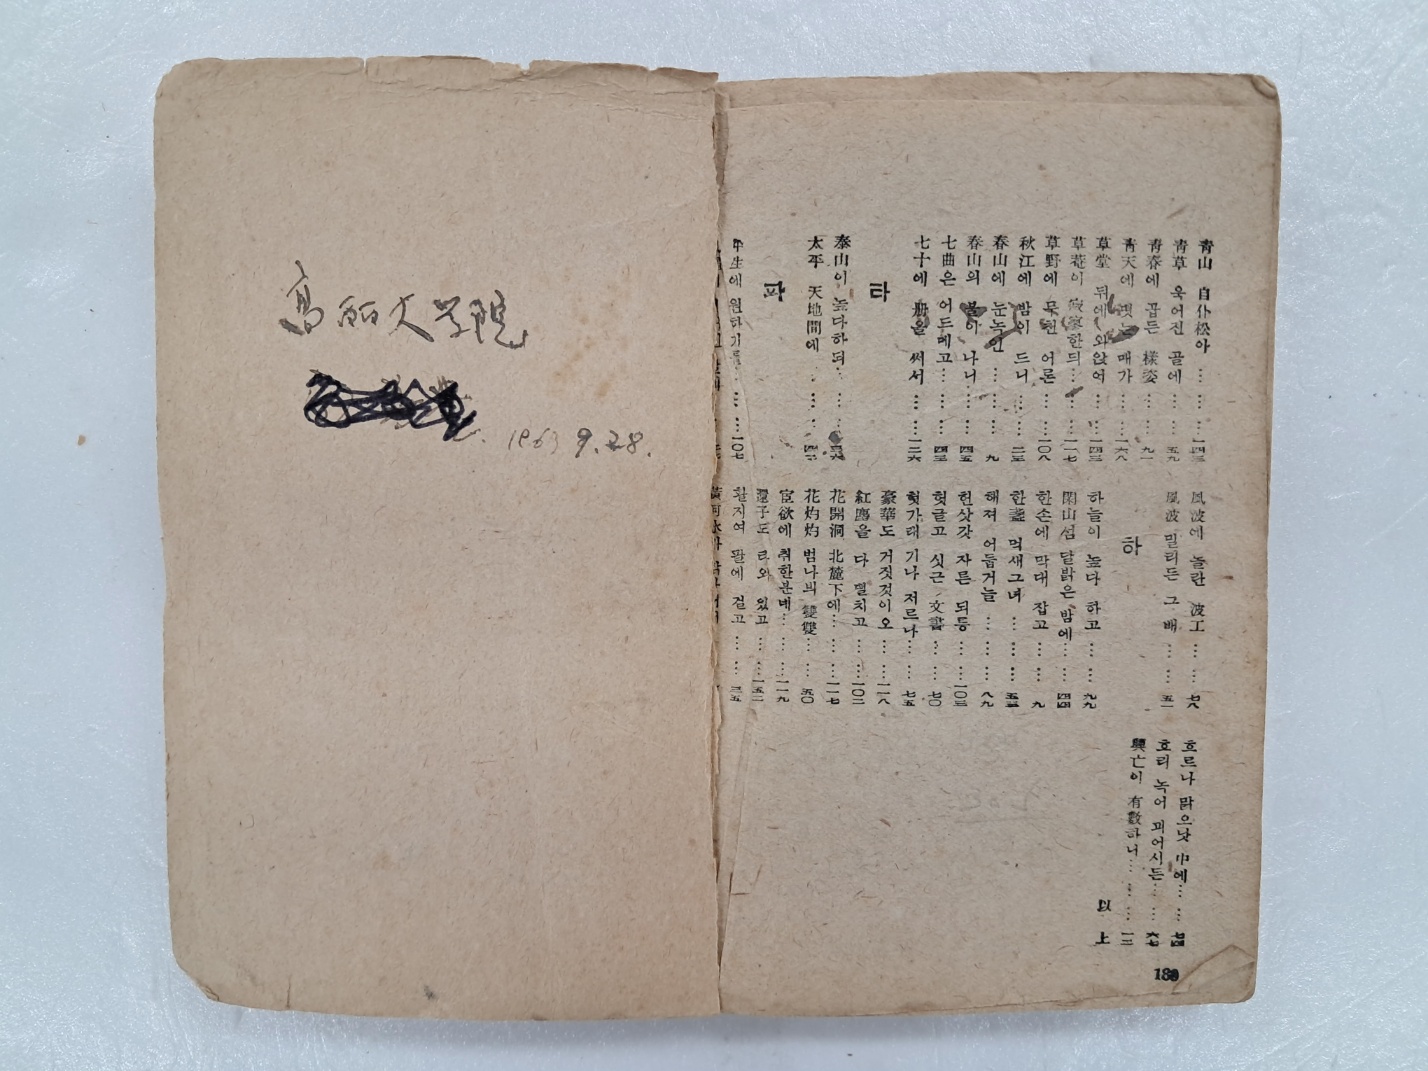 高麗大学院
1963 9.28.
青山 自仆松아 … … 一四三
青草 욱어진 골에 … … 五九
青春에 곱든 樣姿 … … 九一
青天에 매가 … … 一六八
草堂 뒤에 와앉어 … … 一四三
草菴이 寂寥한듸 … … 一一七
草野에 묻힌 어론 … … 一〇八
秋江에 밤이 드니 … … 二三
春山에 눈녹인 … … 九
春山의 불이 나니 … … 四五
七曲은 어드메고 … … 四三
七十에 册을 써서 … … 一二六
타
泰山이 높다하되 … …
太平 天地間에 … …
파
平生에 원하기를 … … 一〇七
風波에 놀란 波工 … … 七八
風波 밀리든 그 배 … … 五一
하
하늘이 높다 하고 … … 九九
閑山섬 달밝은 밤에 … … 四四
한손에 막대 잡고 … … 九
한盞 먹새그녀 … … 五三
해져 어둡거늘 … … 八九
헌삿갓 자른 되롱 … … 一〇三
헛글고 싯근 文書 … … 七〇
헛가래 기나 저르나 … … 七五
豪華도 거짓것이오 … … 一一八
紅塵을 다 떨치고 … … 一〇二
花開洞 北麓下에 … … 一一七
花灼灼 범나븨 雙雙 … … 五〇
宦欲에 취한분네 … … 一一九
還子도 타와 있고 … … 一五二
활지여 팔에 걸고 … … 三五
흐르나 맑으낫 中에 … … 七四
흐리 녹어 괴어시든 … … 六七
興亡이 有數하니 … … 一二
以 上
189